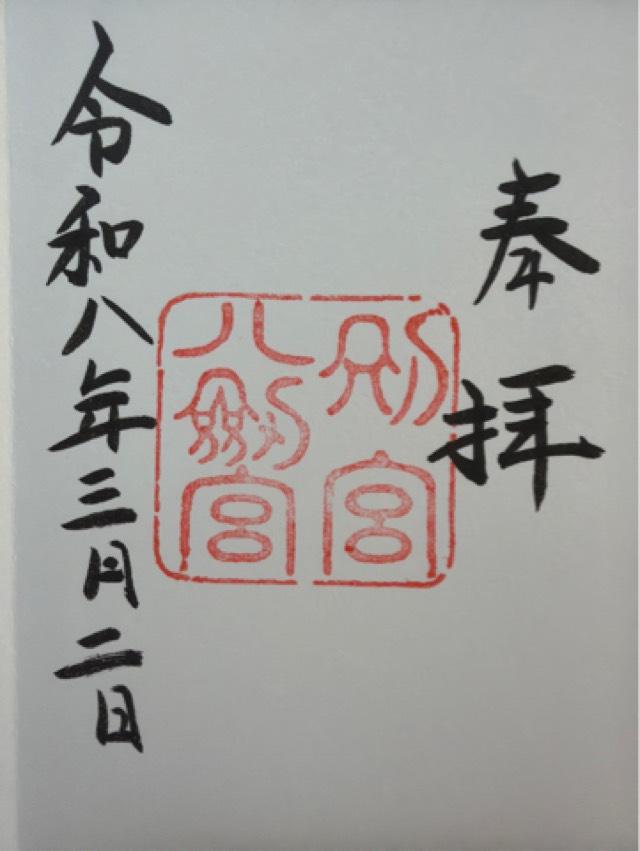 奉拝
別宮
八剱宮
令和八年三月二日